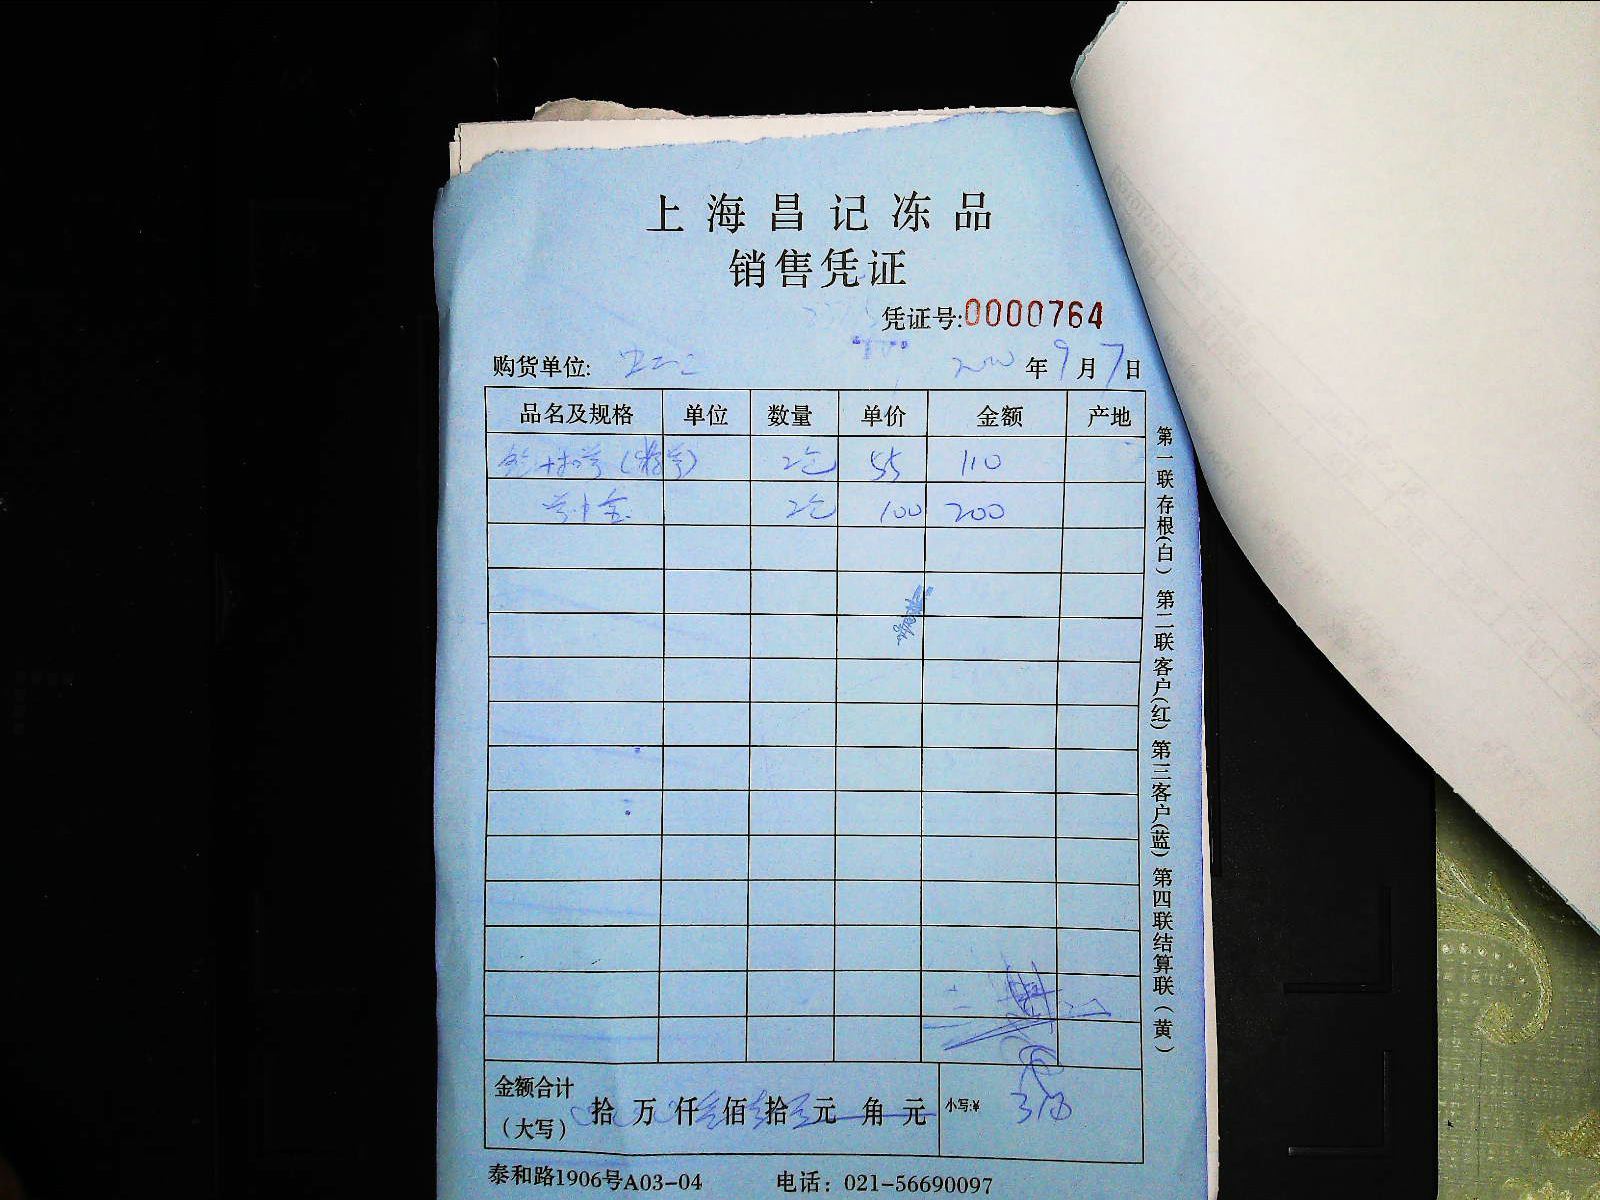 上海昌记冻品
销售凭证
凭证号:0000764
购货单位: 年9月7日
品名及规格 单位 数量 单价 金额 产地
2包 55 110
2包 100 200
金额合计
(大写) 拾万仟叁佰壹拾元角元 小写:¥ 310
泰和路1906号A03-04 电话：021-56690097
第一联存根(白) 第二联客户(红) 第三客户(蓝) 第四联结算联(黄)